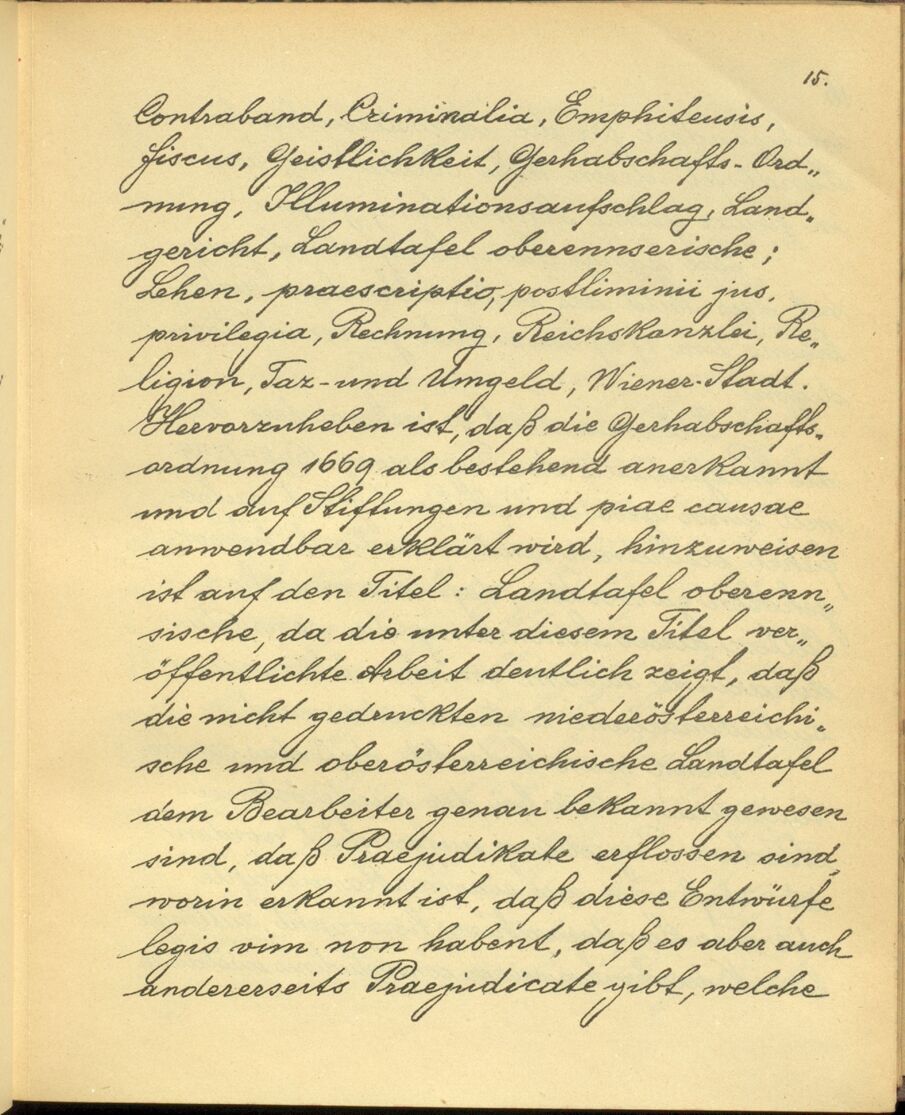 15.
Contraband, Criminalia, Emphiteusis,
fiscus, Geistlichkeit, Gerhabschafts-Ord„
nung, Illuminationsaufschlag, Land„
gericht, Landtafel oberennserische;
Lehen, praescriptio, postliminii jus,
privilegia, Rechnung, Reichskanzlei, Re„
ligion, Taz- und Umgeld, Wiener-Stadt.
Hervorzuheben ist, daß die Gerhabschafts„
ordnung 1669 als bestehend anerkannt
und auf Stiftungen und piae causae
anwendbar erklärt wird, hinzuweisen
ist auf den Titel: Landtafel oberenn„
sische, da die unter diesem Titel ver„
öffentlichte Arbeit deutlich zeigt, daß
die nicht gedruckten niederösterreichi„
sche und oberösterreichische Landtafel
dem Bearbeiter genau bekannt gewesen
sind, daß Praejudikate erflossen sind,
worin erkannt ist, daß diese Entwürfe
legis vim non habent, daß es aber auch
andererseits Praejudicate gibt, welche